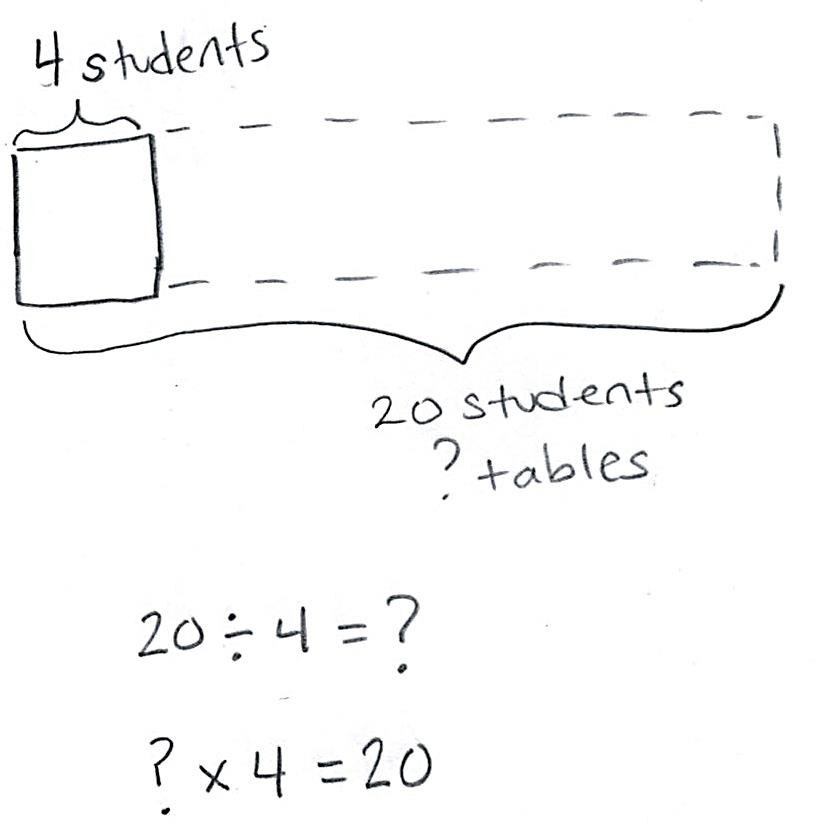 4 students
20 students
? tables
20 ÷ 4 = ?
? x 4 = 20